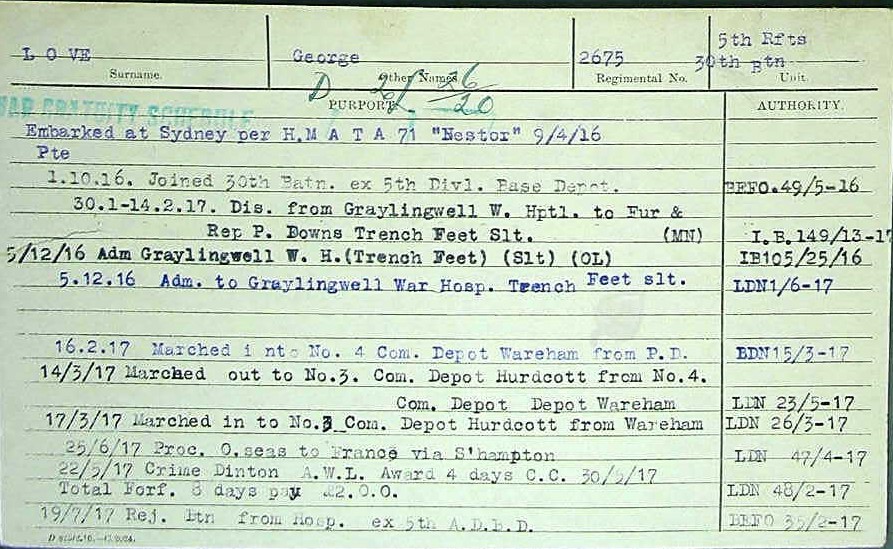 LOVE George 2675 5th Rfts
30th Btn
Surname. Other Names. Regimental No. Unit.
D 26/ 26/20
WAR GRATUITY SCHEDULE
PURPORT. AUTHORITY.
Embarked at Sydney per H.M A T A 71 "Nestor" 9/4/16
Pte
1.10.16. Joined 30th Batn. ex 5th Divl. Base Depot. BEFO.49/5-16
30.1-14.2.17. Dis. from Graylingwell W. Hptl. to Fur &
Rep P. Downs Trench Feet Slt. (MN) I.B.149/13-17
5/12/16 Adm Graylingwell W. H.(Trench Feet) (Slt) (OL) IB105/25/16
5.12.16 Adm. to Graylingwell War Hosp. Trench Feet slt. LDN1/6-17
16.2.17 Marched into No. 4 Com. Depot Wareham from P.D. BDN15/3-17
14/3/17 Marched out to No.3. Com. Depot Hurdcott from No.4.
Com. Depot Depot Wareham LDN 23/5-17
17/3/17 Marched in to No.3 Com. Depot Hurdcott from Wareham LDN 26/3-17
25/6/17 Proc. O.seas to France via S'hampton LDN 47/4-17
22/5/17 Crime Dinton A.W.L. Award 4 days C.C. 30/5/17
Total Forf. 8 days pay £2.0.0. LDN 48/2-17
19/7/17 Rej. Btn from Hosp. ex 5th A.D.B.D. BEFO 35/2-17